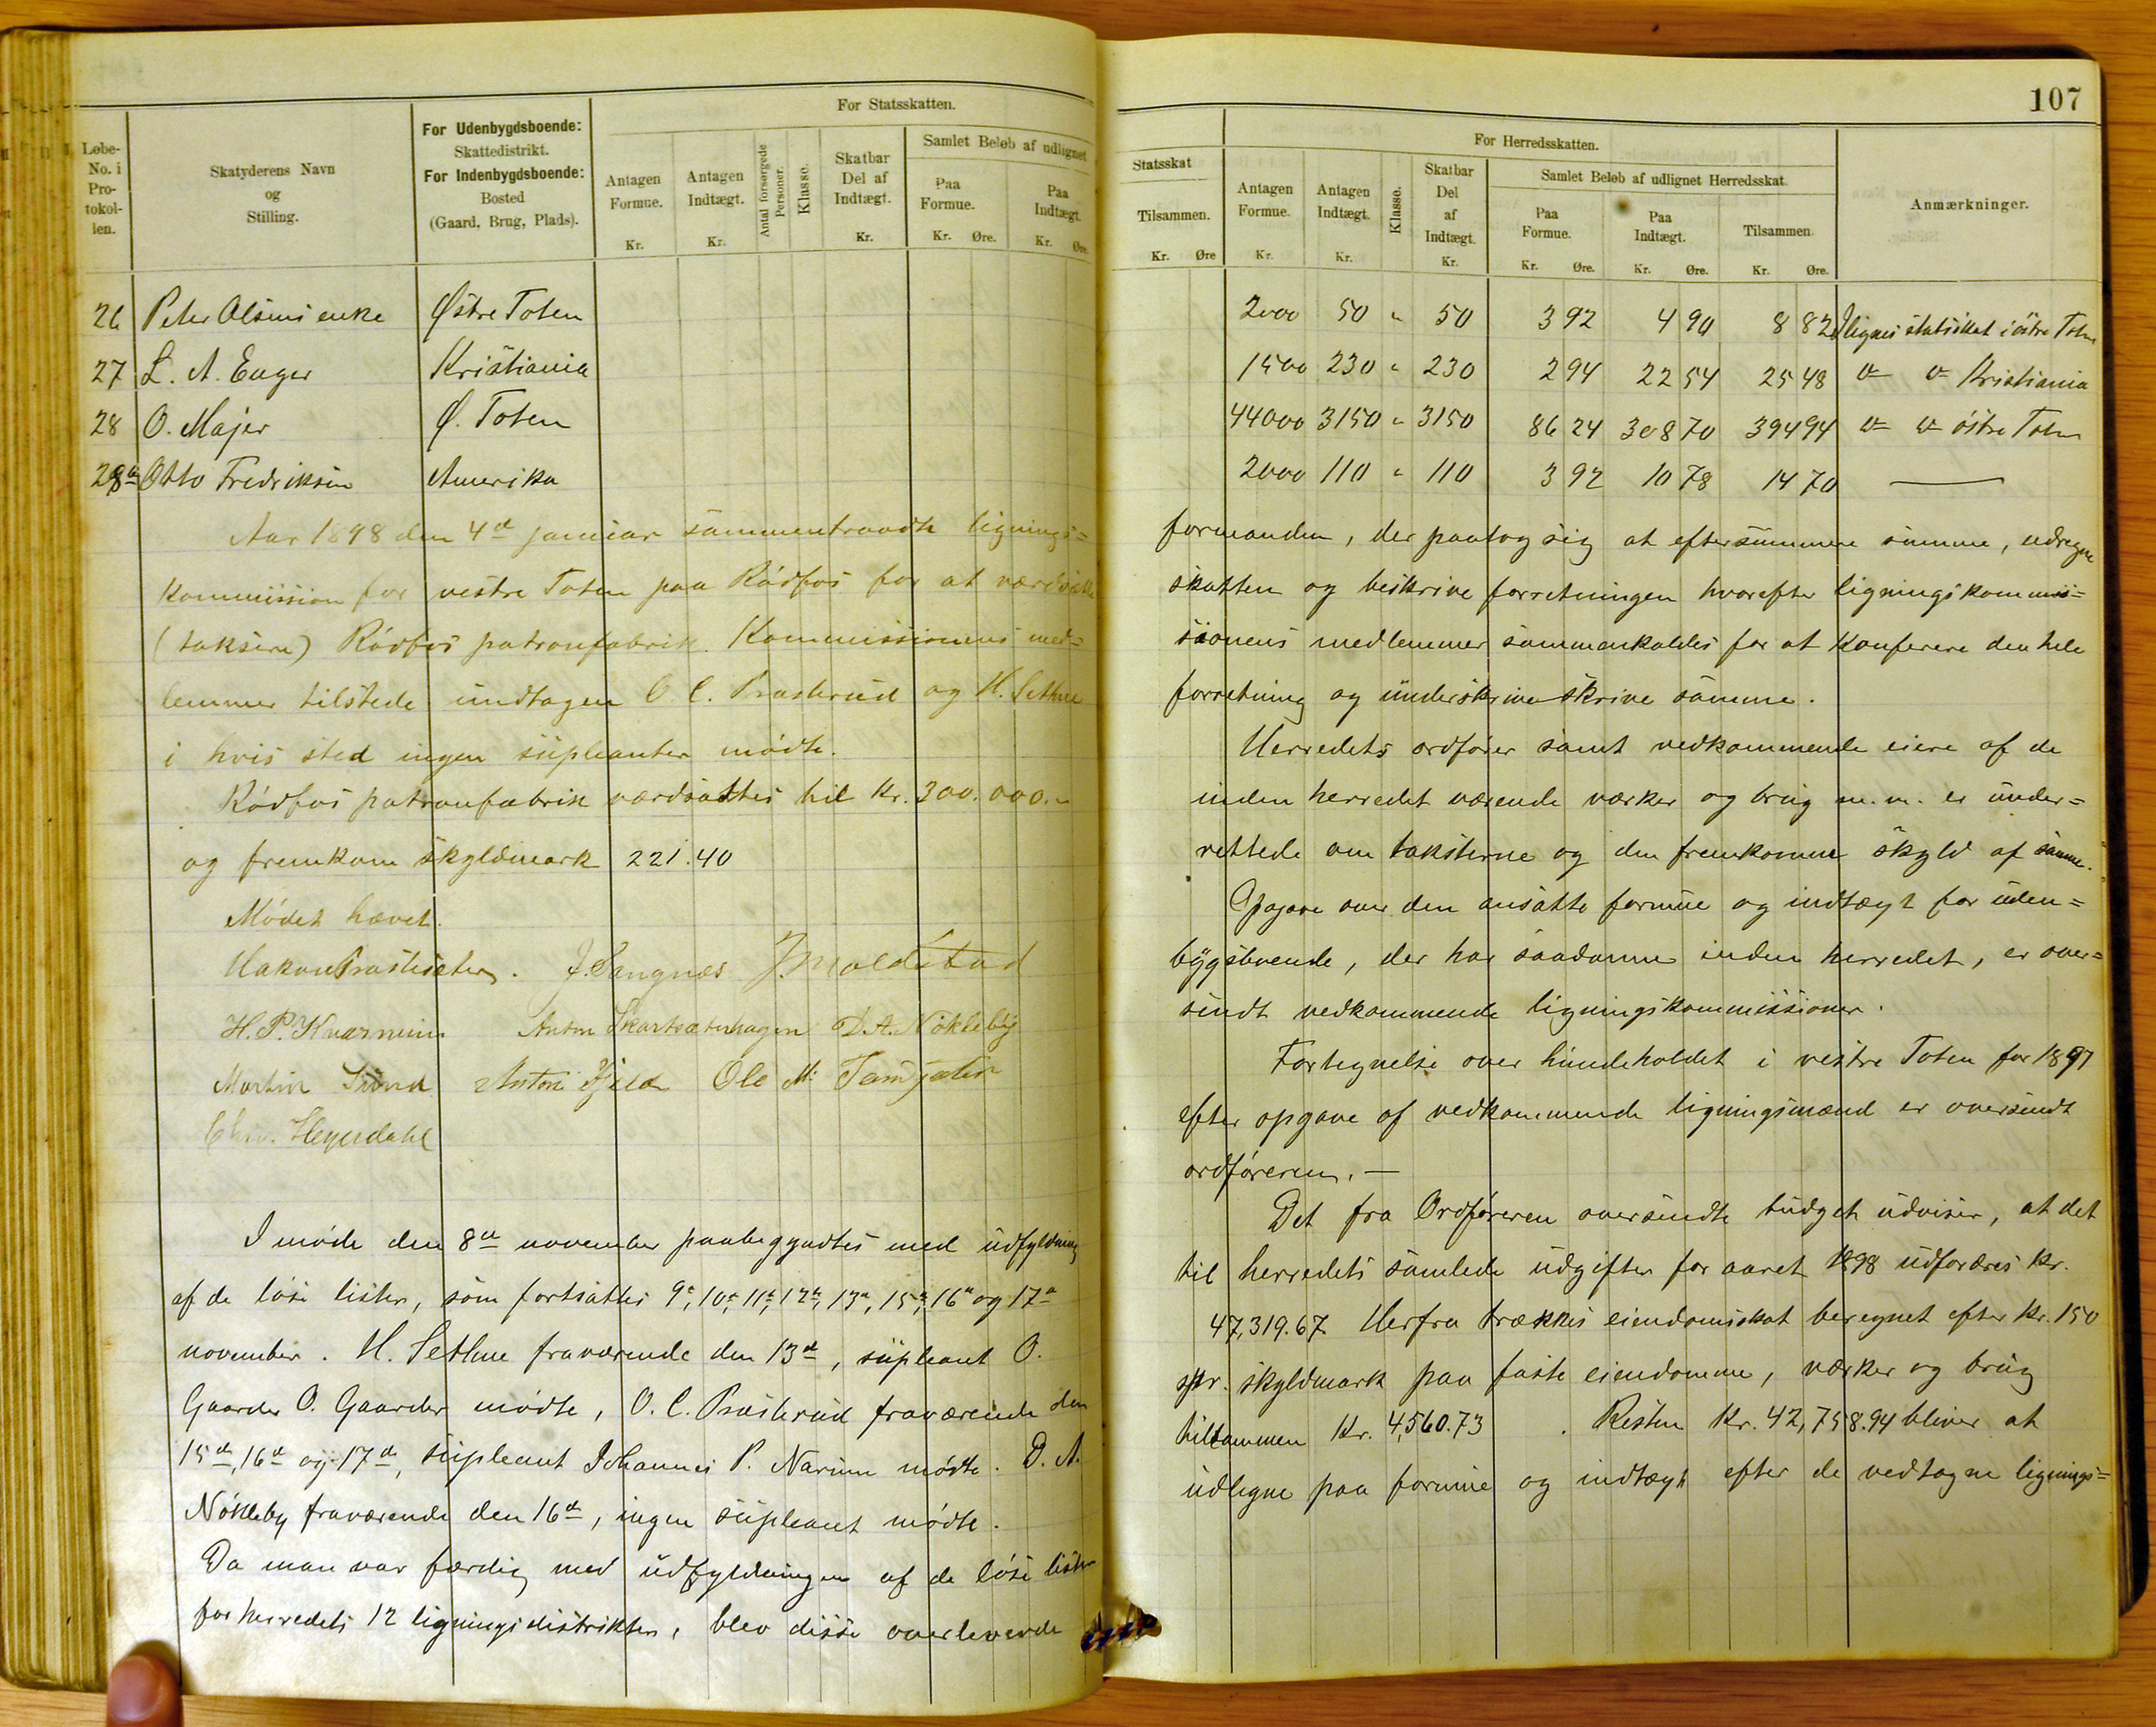 107
For Statsskatten.
Løbe-No. i Pro-tokol-len.
Skatyderens Navn og Stilling.
For Udenbygdsboende: Skattedistrikt. For Indenbygdsboende: Bosted (Gaard, Brug, Plads).
Antagen Formue. Kr.
Antagen Indtægt. Kr.
Antal forsørgede Personer.
Klasse.
Skatbar Del af Indtægt. Kr.
Samlet Beløb af udlignet
Paa Formue. Kr. Øre.
Paa Indtægt. Kr. Øre.
26 Peter Olsens enke Østre Toten
27 L. A. Enger Kristiania
28 O. Majer Ø. Toten
28a Otto Fredriksen Amerika
Aar 1898 den 4de januar sammentraadte lignings=
kommission for vestre Toten paa Rødfos for at værdsætte
(taksere) Rødfos patronfabrik. Kommissionens med=
lemmer tilstede undtagen O. C. Præsterud og H. Sethne
i hvis sted ingen supleanter mødte.
Rødfos patronfabrik værdsattes til Kr. 300.000.-
og fremkom skyldmark 221.40
Mødet hævet.
Hakon Præstesæter. J. Sangnæs J. Moldstad
H. P. Kværnum Anton Skartsæterhagen D. A. Nøkleby
Martin Sund Anton Fjeld Ole M.
Chr. Heyerdahl
I møde den 8de november paabegyndtes med udfyldning
af de løse lister, som fortsattes 9de, 10de, 11te, 12te, 13de, 15de, 16de og 17de
november. H. Sethne fraværende den 13de, supleant O.
Gaarder O. Gaarder mødte, O. C. Præsterud fraværende den
15de, 16de og 17de, supleant Johannes P. Narum mødte. D. A.
Nøkleby fraværende den 16de, ingen supleant mødte.
Da man var færdig med udfyldningen af de løse lister
for herredets 12 ligningsdistrikter, blev disse overleverede
Statsskat
Tilsammen. Kr. Øre
For Herredsskatten.
Antagen Formue. Kr.
Antagen Indtægt. Kr.
Klasse.
Skatbar Del af Indtægt. Kr.
Samlet Beløb af udlignet Herredsskat.
Paa Formue. Kr. Øre.
Paa Indtægt. Kr. Øre.
Tilsammen. Kr. Øre.
Anmærkninger.
2000 50 " 50 3 92 4 90 8 82 Ilignes statsskat i østre Toten
1500 230 " 230 2 94 22 54 25 48 do do Kristiania
44000 3150 " 3150 86 24 308 70 394 94 do do østre Toten
2000 110 " 110 3 92 10 78 14 70 —
formanden, der paatog sig at eftersummere samme, udregne
skatten og beskrive forretningen hvorefter ligningskommis=
sionens medlemmer sammenkaldes for at konferere den hele
forretning og underskrive skrive samme.
Herredets ordfører samt vedkommende eiere af de
inden herredet værende værker og brug m. m. er under=
rettede om taksterne og den fremkomne skyld af samme.
Opgave over den ansatte formue og indtægt for uden=
bygsboende, der har saadanne inden herredet, er over=
sendt vedkommende ligningskommissioner.
Fortegnelse over hundeholdet i vestre Toten for 1897
efter opgave af vedkommende ligningsmænd er oversendt
ordføreren. —
Det fra Ordføreren oversendte budget udviser, at det
til herredets samlede udgifter for aaret 1898 udfordres kr.
47,319.67. Herfra trækkes eiendomsskat beregnet efter kr. 150
pr. skyldmark paa faste eiendomme, værker og brug
tilsammen Kr. 4,560.73 . Resten Kr. 42,758.94 bliver at
udligne paa formue og indtægt efter de vedtagne lignings=